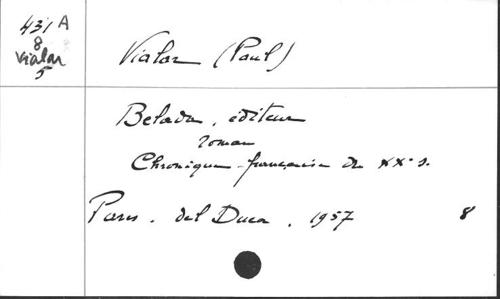 431 A
8
Vialar
5
Vialar (Paul)
Belada, éditeur
roman
Chronique française du XXe s.
Paris. del Duca, 1957 8